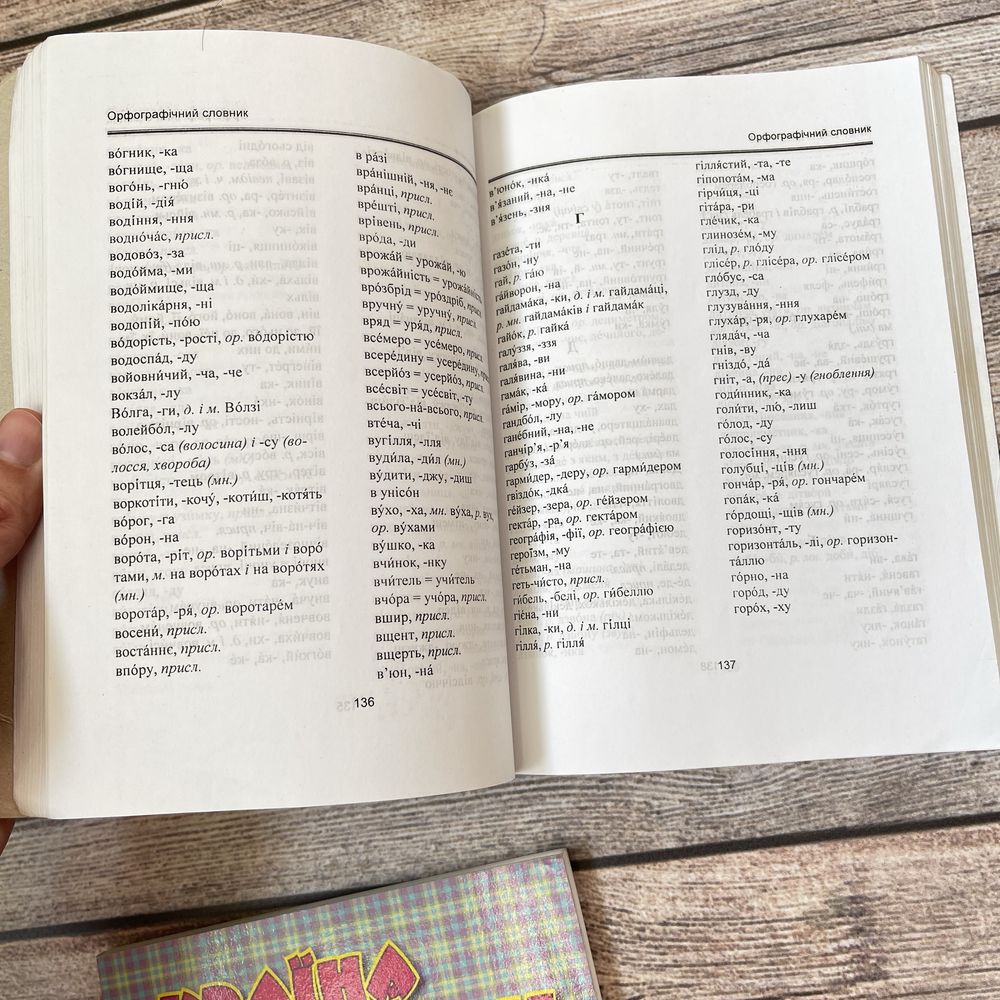 Орфографічний словник
во́гник, -ка
во́гнище, -ща
вого́нь, -гню́
воді́й, -дія́
воді́ння, -ння
водно́час, присл.
водово́з, -за
водо́йма, -ми
водо́ймище, -ща
водоліка́рня, -ні
водопі́й, -по́ю
во́дорість, -рості, ор. во́дорістю
водоспа́д, -ду
войовни́чий, -ча, -че
вокза́л, -лу
Во́лга, -ги, д. і м. Во́лзі
волейбо́л, -лу
во́лос, -са (волосина) і -су (во-
лосся, хвороба)
ворі́тця, -тець (мн.)
воркоті́ти, -кочу́, -коти́ш, -котя́ть
во́рог, -га
во́рон, -на
воро́та, -рі́т, ор. ворі́тьми і воро́
тами, м. на воро́тах і на воро́тях
(мн.)
ворота́р, -ря́, ор. воротаре́м
восени́, присл.
воста́ннє, присл.
впо́ру, присл.
в ра́зі
вра́нішній, -ня, -не
вра́нці, присл.
вре́шті, присл.
врі́вень, присл.
вро́да, -ди
врожа́й = урожа́й, -ю
врожа́йність = урожа́йність
вро́здріб = уро́здріб, присл.
вручну́ = уручну́, присл.
вряд = уря́д, присл.
все́меро = усе́меро, присл.
всере́дину = усере́дину, присл.
всерйо́з = усерйо́з, присл.
все́світ = усе́світ, -ту
всього́-на́-всього, присл.
вте́ча, -чі
вугі́лля, -лля
вуди́ла, -ди́л (мн.)
ву́дити, -джу, -диш
в унісо́н
ву́хо, -ха, мн. ву́ха, р. вух,
ор. ву́хами
ву́шко, -ка
вчи́нок, -нку
вчи́тель = учи́тель
вчо́ра = учо́ра, присл.
вшир, присл.
вщент, присл.
вщерть, присл.
в’юн, -на́
136
Орфографічний словник
в’юно́к, -нка́
в’я́заний, -на, -не
в’я́зень, -зня
Г
газе́та, -ти
газо́н, -ну
гай, р. га́ю
га́йворон, -на
гайдама́ка, -ки, д. і м. гайдама́ці,
р. мн. гайдама́ків і гайдама́к
гайо́к, р. гайка́
галу́ззя, -ззя
галя́ва, -ви
галя́вина, -ни
гама́к, -ка́
га́мір, -мору, ор. га́мором
гандбо́л, -лу
гане́бний, -на, -не
ганчі́р’я, -р’я
гарбу́з, -за́
гарми́дер, -деру, ор. гарми́дером
гвіздо́к, -дка́
ге́йзер, -зера, ор. ге́йзером
гекта́р, -ра, ор. гекта́ром
геогра́фія, -фії, ор. геогра́фією
герої́зм, -му
ге́тьман, -на
геть-чи́сто, присл.
ги́бель, -белі, ор. ги́беллю
гіє́на, -ни
гі́лка, -ки, д. і м. гі́лці
гілля́, р. гілля́
гілля́стий, -та, -те
гіпопота́м, -ма
гірчи́ця, -ці
гіта́ра, -ри
гле́чик, -ка
глинозе́м, -му
глід, р. гло́ду
глісе́р, р. глісе́ра, ор. глісе́ром
гло́бус, -са
глузд, -ду
глузува́ння, -ння
глуха́р, -ря, ор. глухаре́м
гляда́ч, -ча
гнів, -ву
гніздо́, -да́
гніт, -а, (прес) -у (гноблення)
годи́нник, -ка
голи́ти, -лю́, -лиш
го́лод, -ду
го́лос, -су
голосі́ння, -ння
голубці́, -ців (мн.)
гонча́р, -ря́, ор. гончаре́м
гопа́к, -ка́
го́рдощі, -щів (мн.)
горизо́нт, -ту
горизонта́ль, -лі, ор. горизон-
та́ллю
го́рно, -на
горо́д, -ду
горо́х, -ху
137